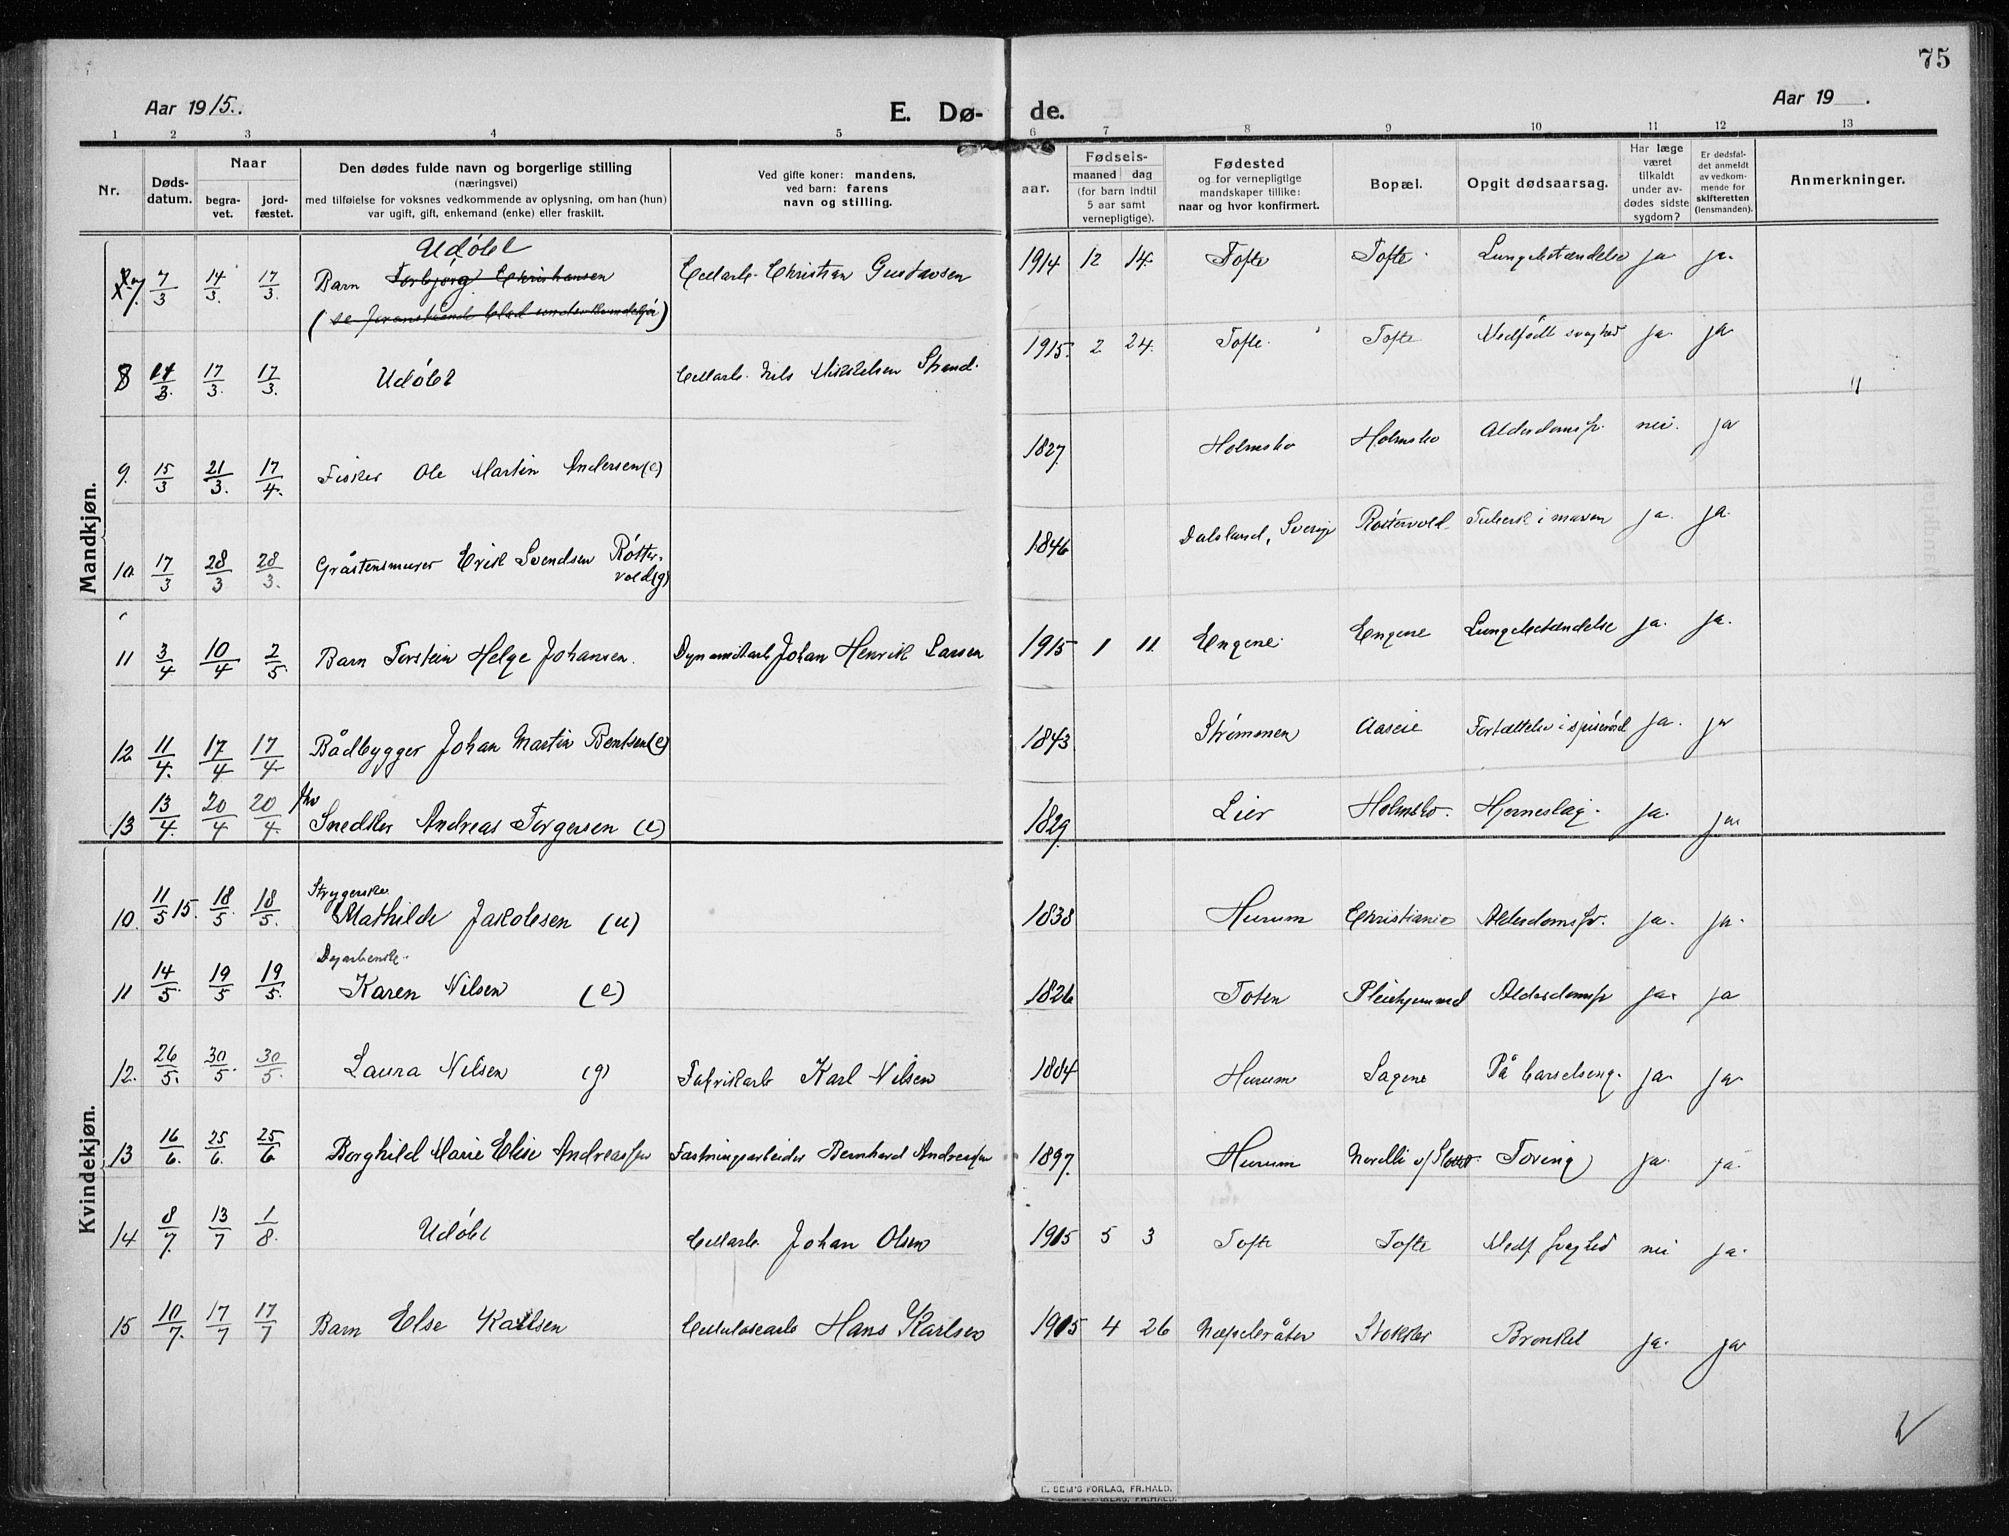 75
Aar 1915.
E. Dø-
de.
Aar 19 .
1 2 3 4 5 6 7 8 9 10 11 12 13
Nr.
Døds-
datum.
Naar
begra-
vet.
jord-
fæstet.
Den dødes fulde navn og borgerlige stilling
(næringsvei)
med tilføielse for voksnes vedkommende av oplysning, om han (hun)
var ugift, gift, enkemand (enke) eller fraskilt.
Ved gifte koner: mandens,
ved barn: farens
navn og stilling.
aar.
Fødsels-
maaned dag
(for barn indtil
5 aar samt
vernepligtige).
Fødested
og for vernepligtige
mandskaper tillike:
naar og hvor konfirmert.
Bopæl.
Opgit dødsaarsag.
Har læge
været
tilkaldt
under av-
dødes sidste
sygdom?
Er dødsfal-
det anmeldt
av vedkom-
mende for
skifteretten
(lensmanden).
Anmerkninger.
Mandkjøn.
Udøbt
7. 7/3 14/3. 17/3. Barn Torbjørg Christiansen Cellarb. Christian Gustavsen 1914 12 14. Tofte Tofte Lungebetændelse ja ja.
(se foranstående blad under kvindekjøn)
8 14/3. 17/3. 17/3. Udøbt Cellarb. Nils Mikkelsen Strand. 1915. 2 24. Tofte. Tofte Medfødt svaghed ja. ja
9. 15/3 21/3. 17/4. Fisker Ole Martin Andersen (e) 1827. Holmsbo Holmsbo Alderdomssv. nei. ja
10. 17/3 28/3 28/3. Gråstensmurer Erik Svendsen Røtter-
vold (g) 1846 Dalsland, Sverige Røttervold Tuberk i maven ja. ja.
11 3/4 10/4 2/5 Barn Torstein Helge Johansen. Dynamitarb Johan Henrik Larsen 1915 1 11. Engene Engene Lungebetændelse ja. ja.
12 11/4. 17/4 17/4 Bådbygger Johan Martin Bentsen (e) 1843 Strømmen Aaseie Fortættelse i spiserød ja. ja
13 13/4. 20/4 20/4. Snedker Andreas Torgersen (e) 1829. Lier Holmsbo. Hjerneslag. ja. ja
Kvindekjøn.
Strygerske
10. 11/5 15. 18/5. 18/5. Mathilde Jakobsen (u) 1838 Hurum Christiania Alderdomssv. ja. ja.
Dagarbeidsk.
11 14/5. 19/5 19/5. Karen Nilsen (e) 1826 Toten Pleiehjemmet Alderdomssv ja. ja
12. 26/5. 30/5. 30/5. Laura Nilsen (g) Fabrikarb Karl Nilsen 1884 Hurum Sagene På barselseng. ja. ja.
13 16/6. 25/6. 25/6 Borghild Marie Elise Andreassen Fæstningsarbeider Bernhard Andreassen 1897. Hurum Tæring ja. ja.
14 8/7. 13/7 1/8. Udøbt Cellarb. Johan Olsen 1915 5 3 Tofte Tofte Medf svaghed nei ja.
15 10/7. 17/7 17/7 Barn Else Karlsen Cellulosearb Hans Karlsen 1915 4 26 Næpsleråter Stokker Bronkit ja. ja
E. SEM'S FORLAG, FR.HALD.